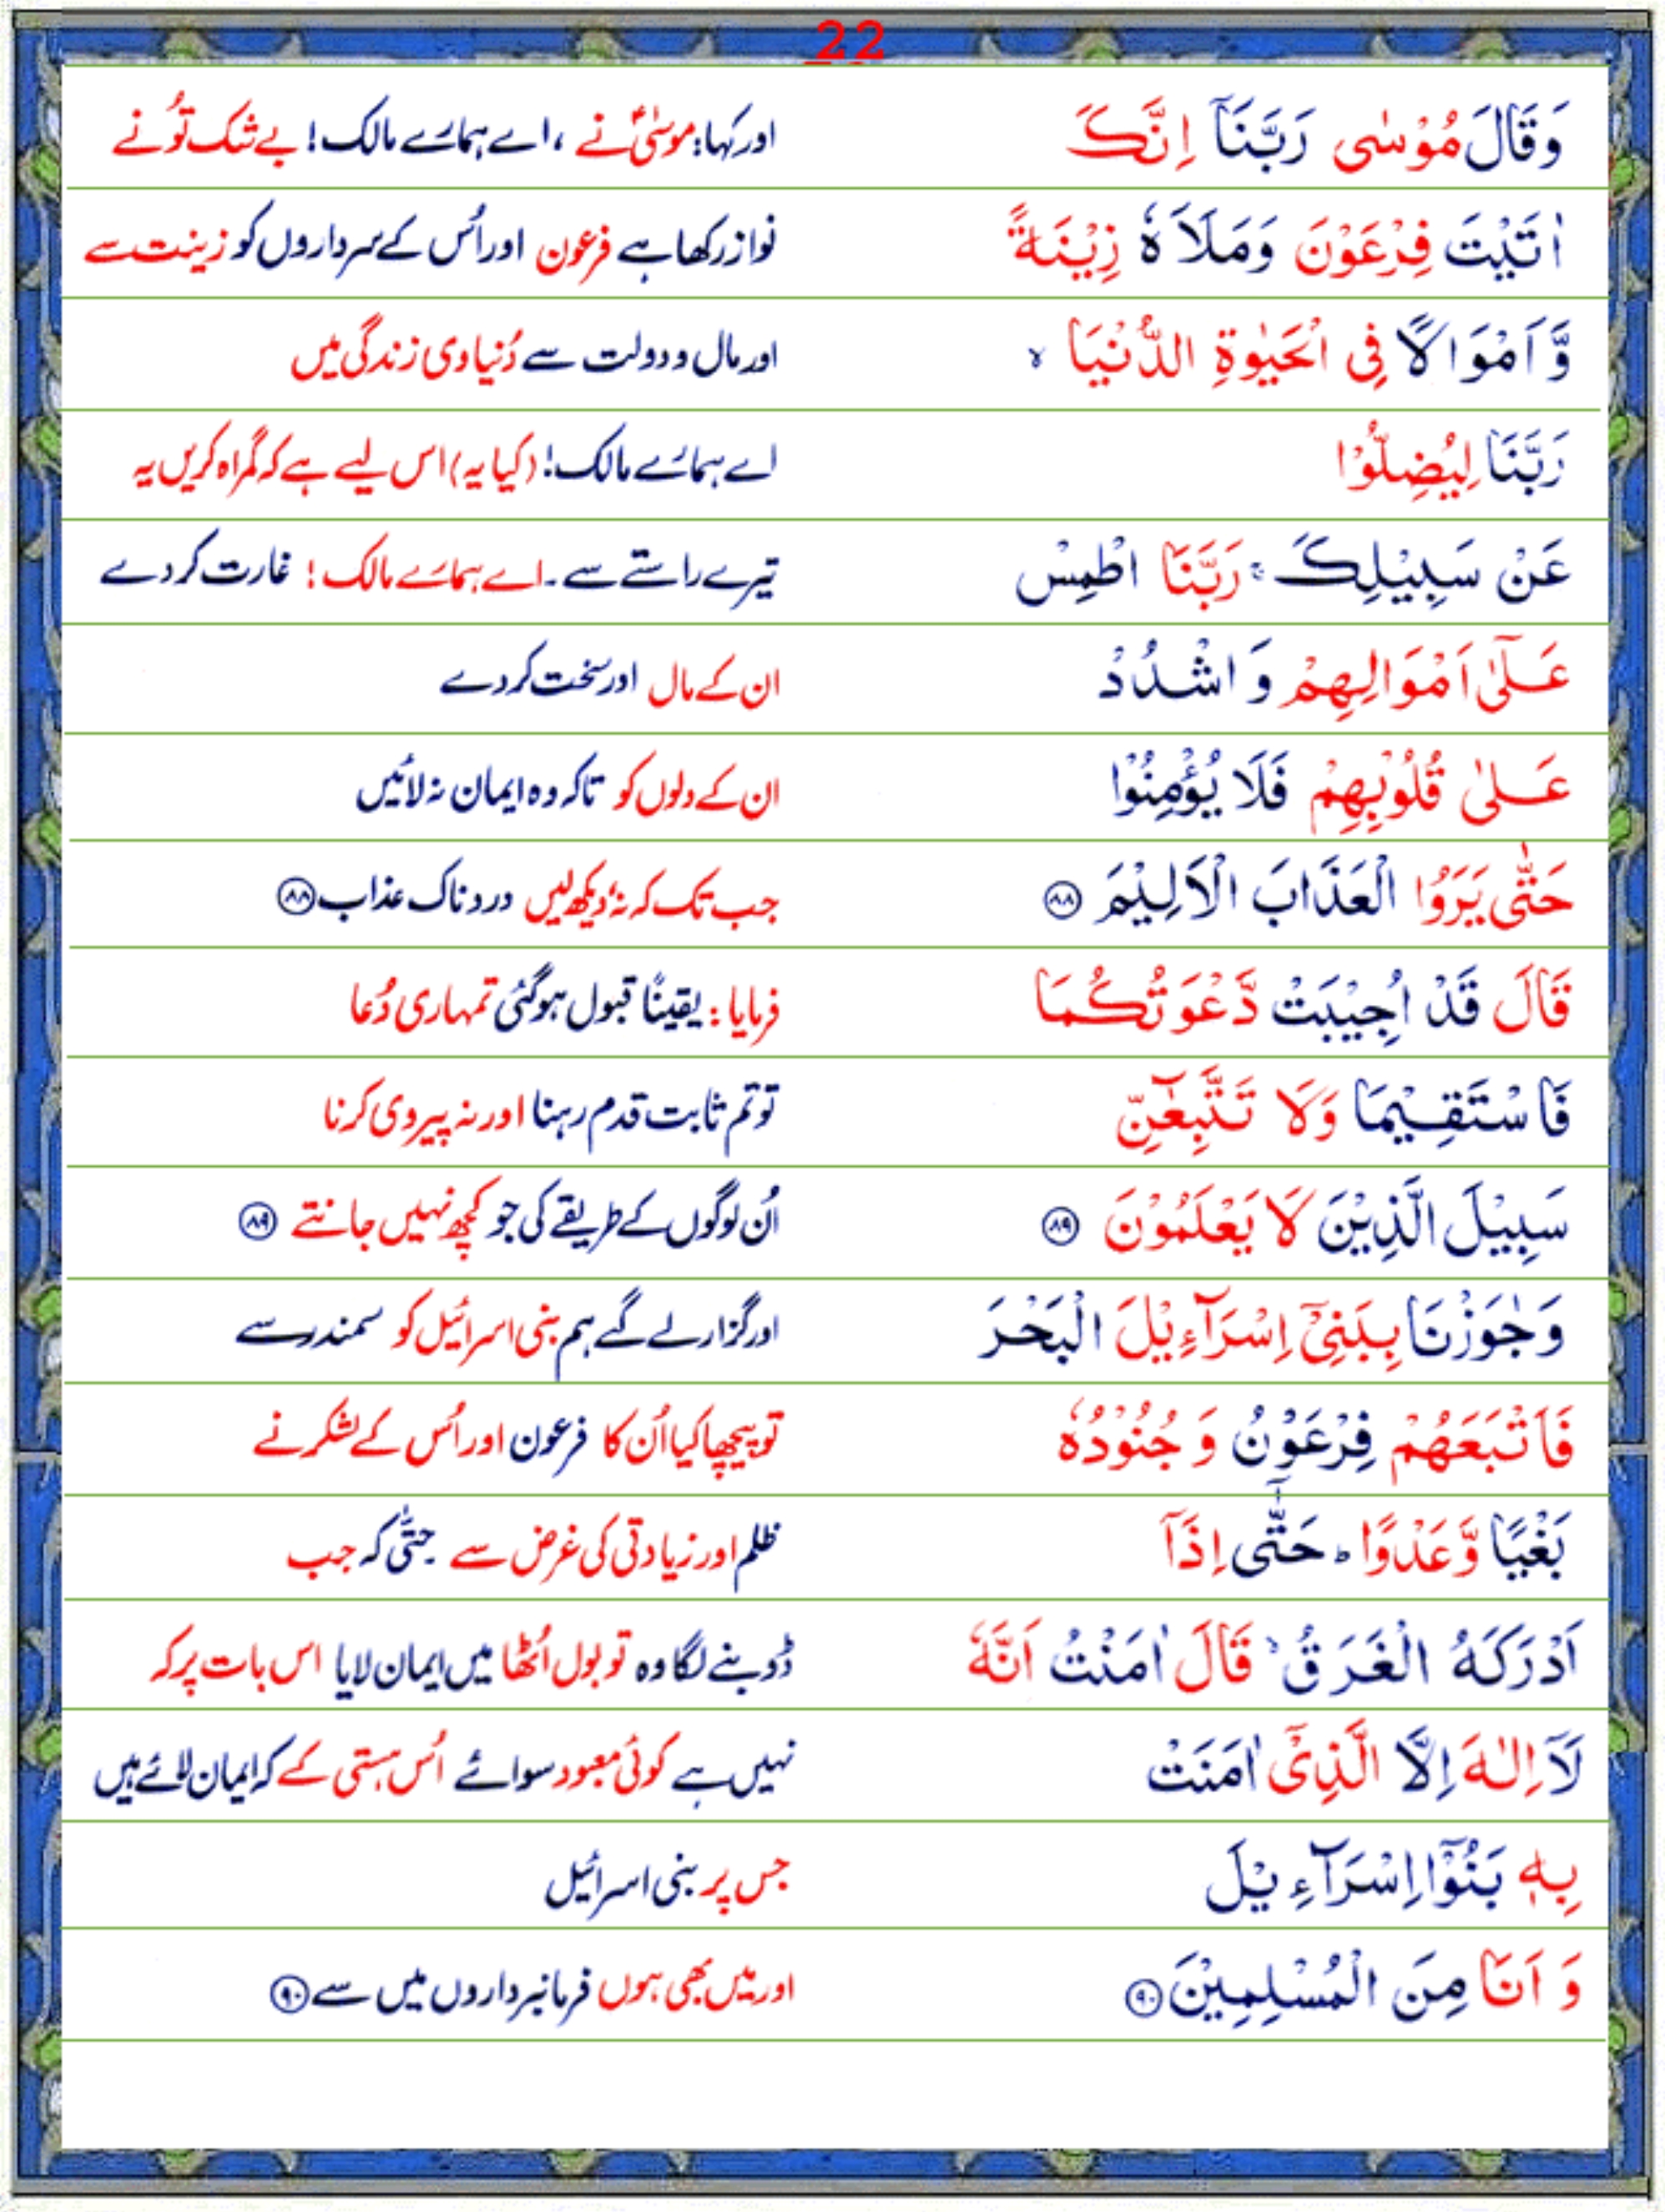 22
وَقَالَ مُوْسٰى رَبَّنَاۤ اِنَّكَ اور کہا: موسٰیؑ نے ، اے ہمارے مالک! بے شک تُو نے
اٰتَيْتَ فِرْعَوْنَ وَمَلَاَهٗ زِيْنَةً نواز رکھا ہے فرعون اور اُس کے سرداروں کو زینت سے
وَّاَمْوَالًا فِى الْحَيٰوةِ الدُّنْيَا ۙ اور مال و دولت سے دُنیاوی زندگی میں
رَبَّنَا لِيُضِلُّوْا اے ہمارے مالک! (کیا یہ) اس لیے ہے کہ گمراہ کریں یہ
عَنْ سَبِيْلِكَ ۚ رَبَّنَا اطْمِسْ تیرے راستے سے۔ اے ہمارے مالک! غارت کر دے
عَلٰٓى اَمْوَالِهِمْ وَ اشْدُدْ ان کے مال اور سخت کر دے
عَلٰى قُلُوْبِهِمْ فَلَا يُؤْمِنُوْا ان کے دلوں کو تاکہ وہ ایمان نہ لائیں
حَتّٰى يَرَوُا الْعَذَابَ الْاَلِيْمَ ۸۸ جب تک کہ نہ دیکھ لیں دردناک عذاب ۸۸
قَالَ قَدْ اُجِيْبَتْ دَّعْوَتُكُمَا فرمایا: یقیناً قبول ہو گئی تمہاری دُعا
فَاسْتَقِيْمَا وَلَا تَتَّبِعٰٓنِّ تو تم ثابت قدم رہنا اور نہ پیروی کرنا
سَبِيْلَ الَّذِيْنَ لَا يَعْلَمُوْنَ ۸۹ اُن لوگوں کے طریقے کی جو کچھ نہیں جانتے ۸۹
وَجٰوَزْنَا بِبَنِىْۤ اِسْرَآءِيْلَ الْبَحْرَ اور گزار لے گئے ہم بنی اسرائیل کو سمندر سے
فَاَتْبَعَهُمْ فِرْعَوْنُ وَ جُنُوْدُهٗ تو پیچھا کیا اُن کا فرعون اور اُس کے لشکر نے
بَغْيًا وَّعَدْوًا ؕ حَتّٰٓى اِذَاۤ ظلم اور زیادتی کی غرض سے حتّٰی کہ جب
اَدْرَكَهُ الْغَرَقُ ۙ قَالَ اٰمَنْتُ اَنَّهٗ ڈوبنے لگا وہ تو بول اُٹھا میں ایمان لایا اس بات پر کہ
لَاۤ اِلٰهَ اِلَّا الَّذِىْۤ اٰمَنَتْ نہیں ہے کوئی معبود سوائے اُس ہستی کے کہ ایمان لائے ہیں
بِهٖ بَنُوْۤا اِسْرَآءِيْلَ جس پر بنی اسرائیل
وَ اَنَا مِنَ الْمُسْلِمِيْنَ ۹۰ اور میں بھی ہوں فرمانبرداروں میں سے ۹۰